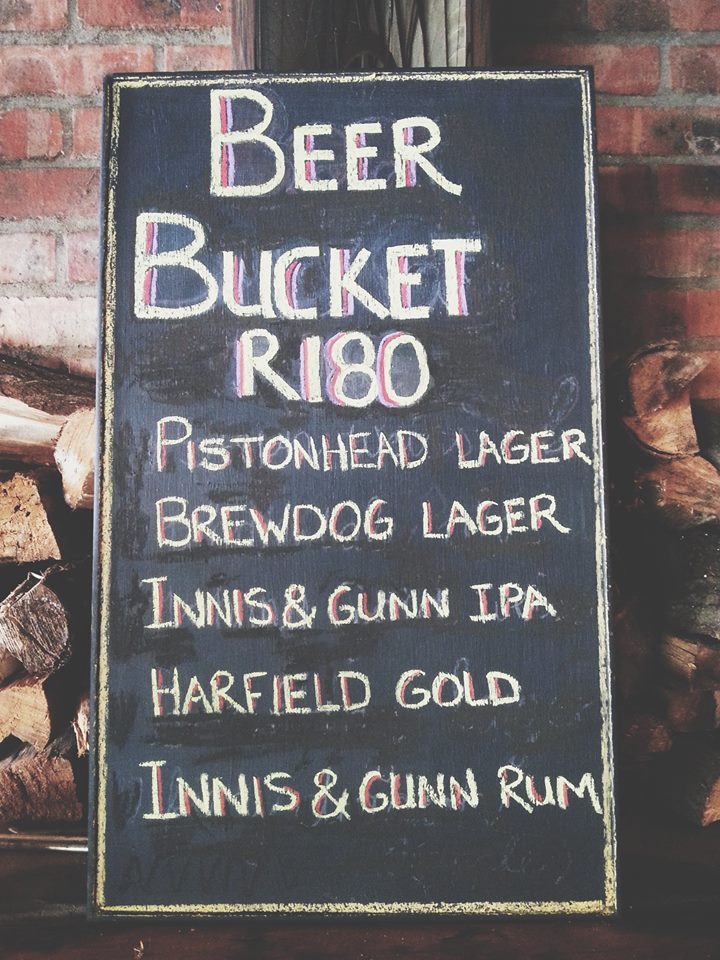 BEER
BUCKET
R180
PISTONHEAD LAGER
BREWDOG LAGER
INNIS & GUNN IPA
HARFIELD GOLD
INNIS & GUNN RUM